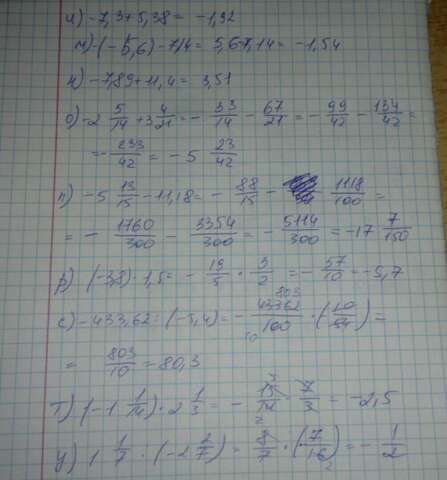 л) -7,3+5,38= -1,92
м) -(-5,6) -7,14= 5,6-7,14= -1,54
н) -7,89+11,4= 3,51
о) -2 5/14 +3 4/21 = - 33/14 - 67/21 = - 99/42 - 134/42 =
= - 233/42 = -5 23/42
п) -5 13/15 -11,18= - 88/15 - 1118/100 =
= - 1760/300 - 3354/300 = - 5114/300 = -17 7/150
р) (-3,8) · 1,5= - 19/5 · 3/2 = - 57/10 = -5,7
с) -433,62: (-5,4) = - 43362/100 · (10/54) =
= 803/10 = 80,3
т) (-1 1/14) · 2 1/3 = - 15/14 · 7/3 = -2,5
у) 1 1/7 · (-2 2/7) = 8/7 · (-7/16) = - 1/2